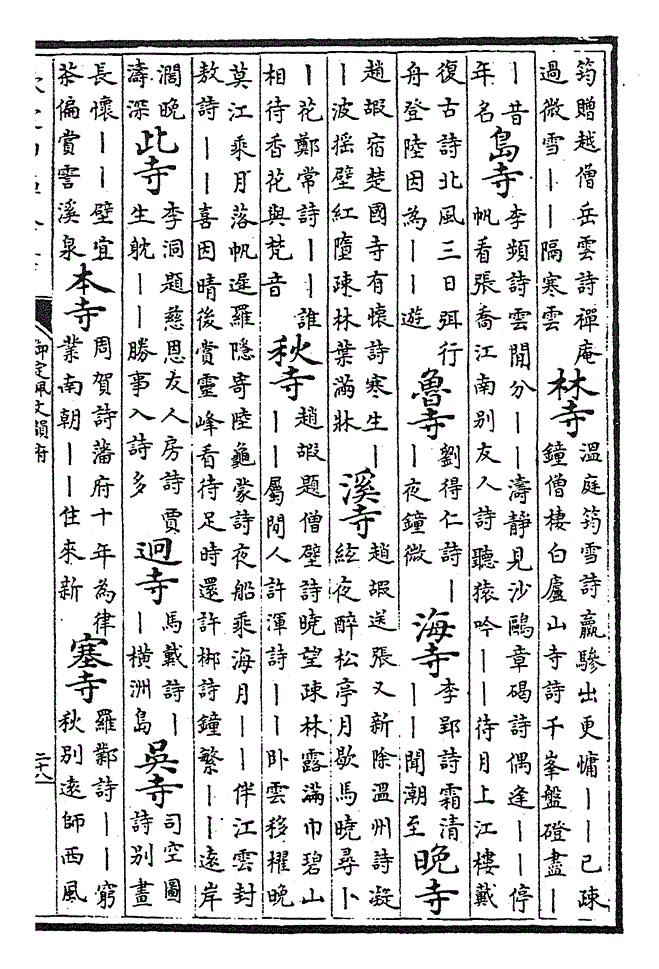 筠贈越僧岳雲詩禪庵
過微雪——隔寒雲
林寺
溫庭筠雪詩羸驂出更慵——已疎
鐘僧棲白廬山寺詩千峯盤磴盡—
—昔
年名
島寺
李頻詩雲間分——濤靜見沙鷗章碣詩偶逢——停
帆看張喬江南別友人詩聽猿吟——待月上江樓戴
復古詩北風三日弭行
舟登陸因為——遊
魯寺
劉得仁詩—
—夜鐘微
海寺
李郢詩霜清
——聞潮至
晚寺
趙嘏宿楚國寺有懷詩寒生—
—波揺壁紅墮疎林葉滿牀
溪寺
趙嘏送張又新除溫州詩凝
絃夜醉松亭月歇馬曉尋卜
—花鄭常詩——誰
相待香花與梵音
秋寺
趙嘏題僧壁詩曉望疎林露滿巾碧山
——屬閒人許渾詩——卧雲移櫂晚
莫江乘月落帆遲羅隱寄陸龜蒙詩夜船乘海月——伴江雲封
敖詩——喜因晴後賞靈峰看待足時還許郴詩鐘繁——遠岸
濶晚
濤深
此寺
李洞題慈恩友人房詩賈
生躭——勝事入詩多
迥寺
馬戴詩—
—橫洲島
吳寺
司空圖
詩別畫
長懷——壁宜
茶偏賞霅溪泉
本寺
周賀詩藩府十年為律
業南朝——住來新
塞寺
羅鄴詩——窮
秋別遠師西風
御定佩文韻府
二十八